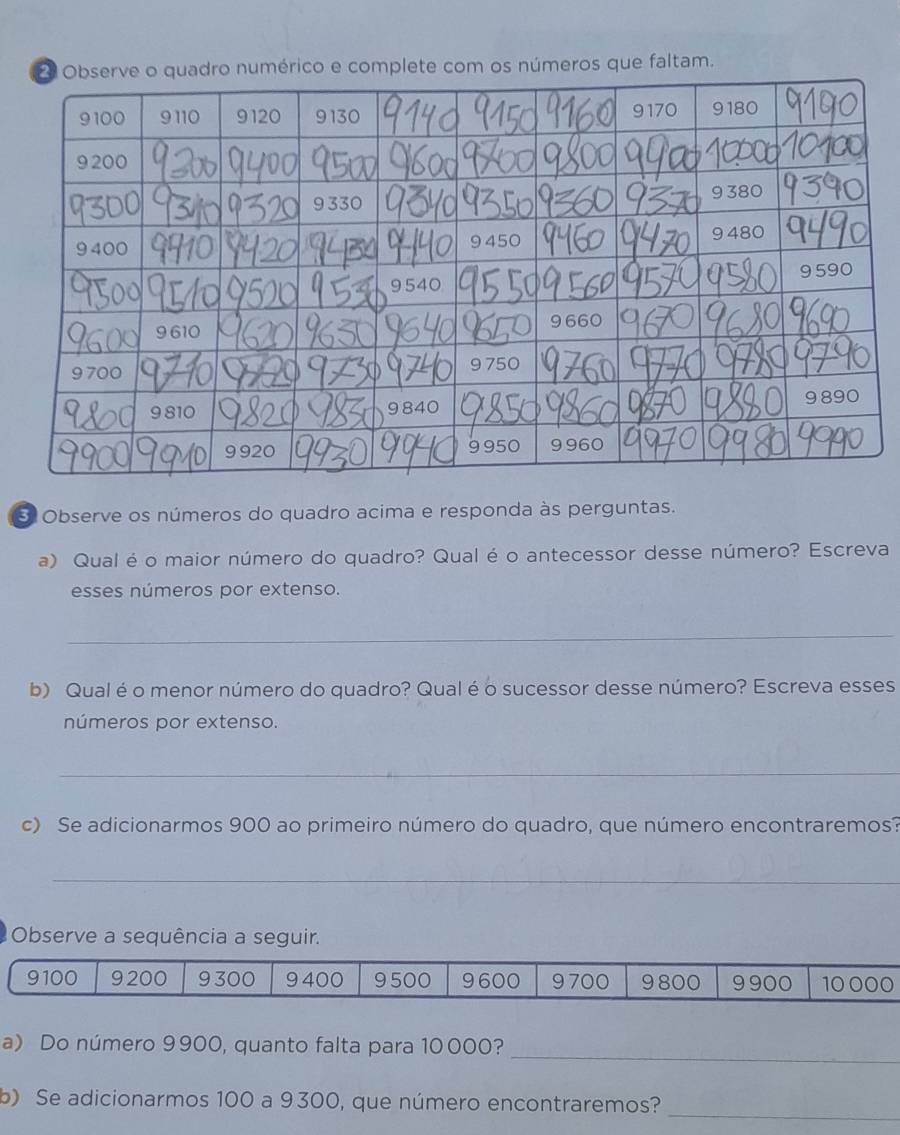 2 Observe o quadro numérico e complete com os números que faltam.
9100 9110 9120 9130 9140 9150 9160 9170 9180 9190
9200 9300 9400 9500 9600 9700 9800 9900 10000 10100
9300 9310 9320 9330 9340 9350 9360 9370 9380 9390
9400 9910 9420 9430 9440 9450 9460 9470 9480 9490
9500 9510 9520 9530 9540 9550 9560 9570 9580 9590
9600 9610 9620 9630 9640 9650 9660 9670 9680 9690
9700 9710 9720 9730 9740 9750 9760 9770 9780 9790
9800 9810 9820 9830 9840 9850 9860 9870 9880 9890
9900 9910 9920 9930 9940 9950 9960 9970 9980 9990
3 Observe os números do quadro acima e responda às perguntas.
a) Qual é o maior número do quadro? Qual é o antecessor desse número? Escreva
esses números por extenso.
b) Qual é o menor número do quadro? Qual é o sucessor desse número? Escreva esses
números por extenso.
c) Se adicionarmos 900 ao primeiro número do quadro, que número encontraremos?
Observe a sequência a seguir.
9100 9200 9300 9400 9500 9600 9700 9800 9900 10000
a) Do número 9900, quanto falta para 10000?
b) Se adicionarmos 100 a 9300, que número encontraremos?